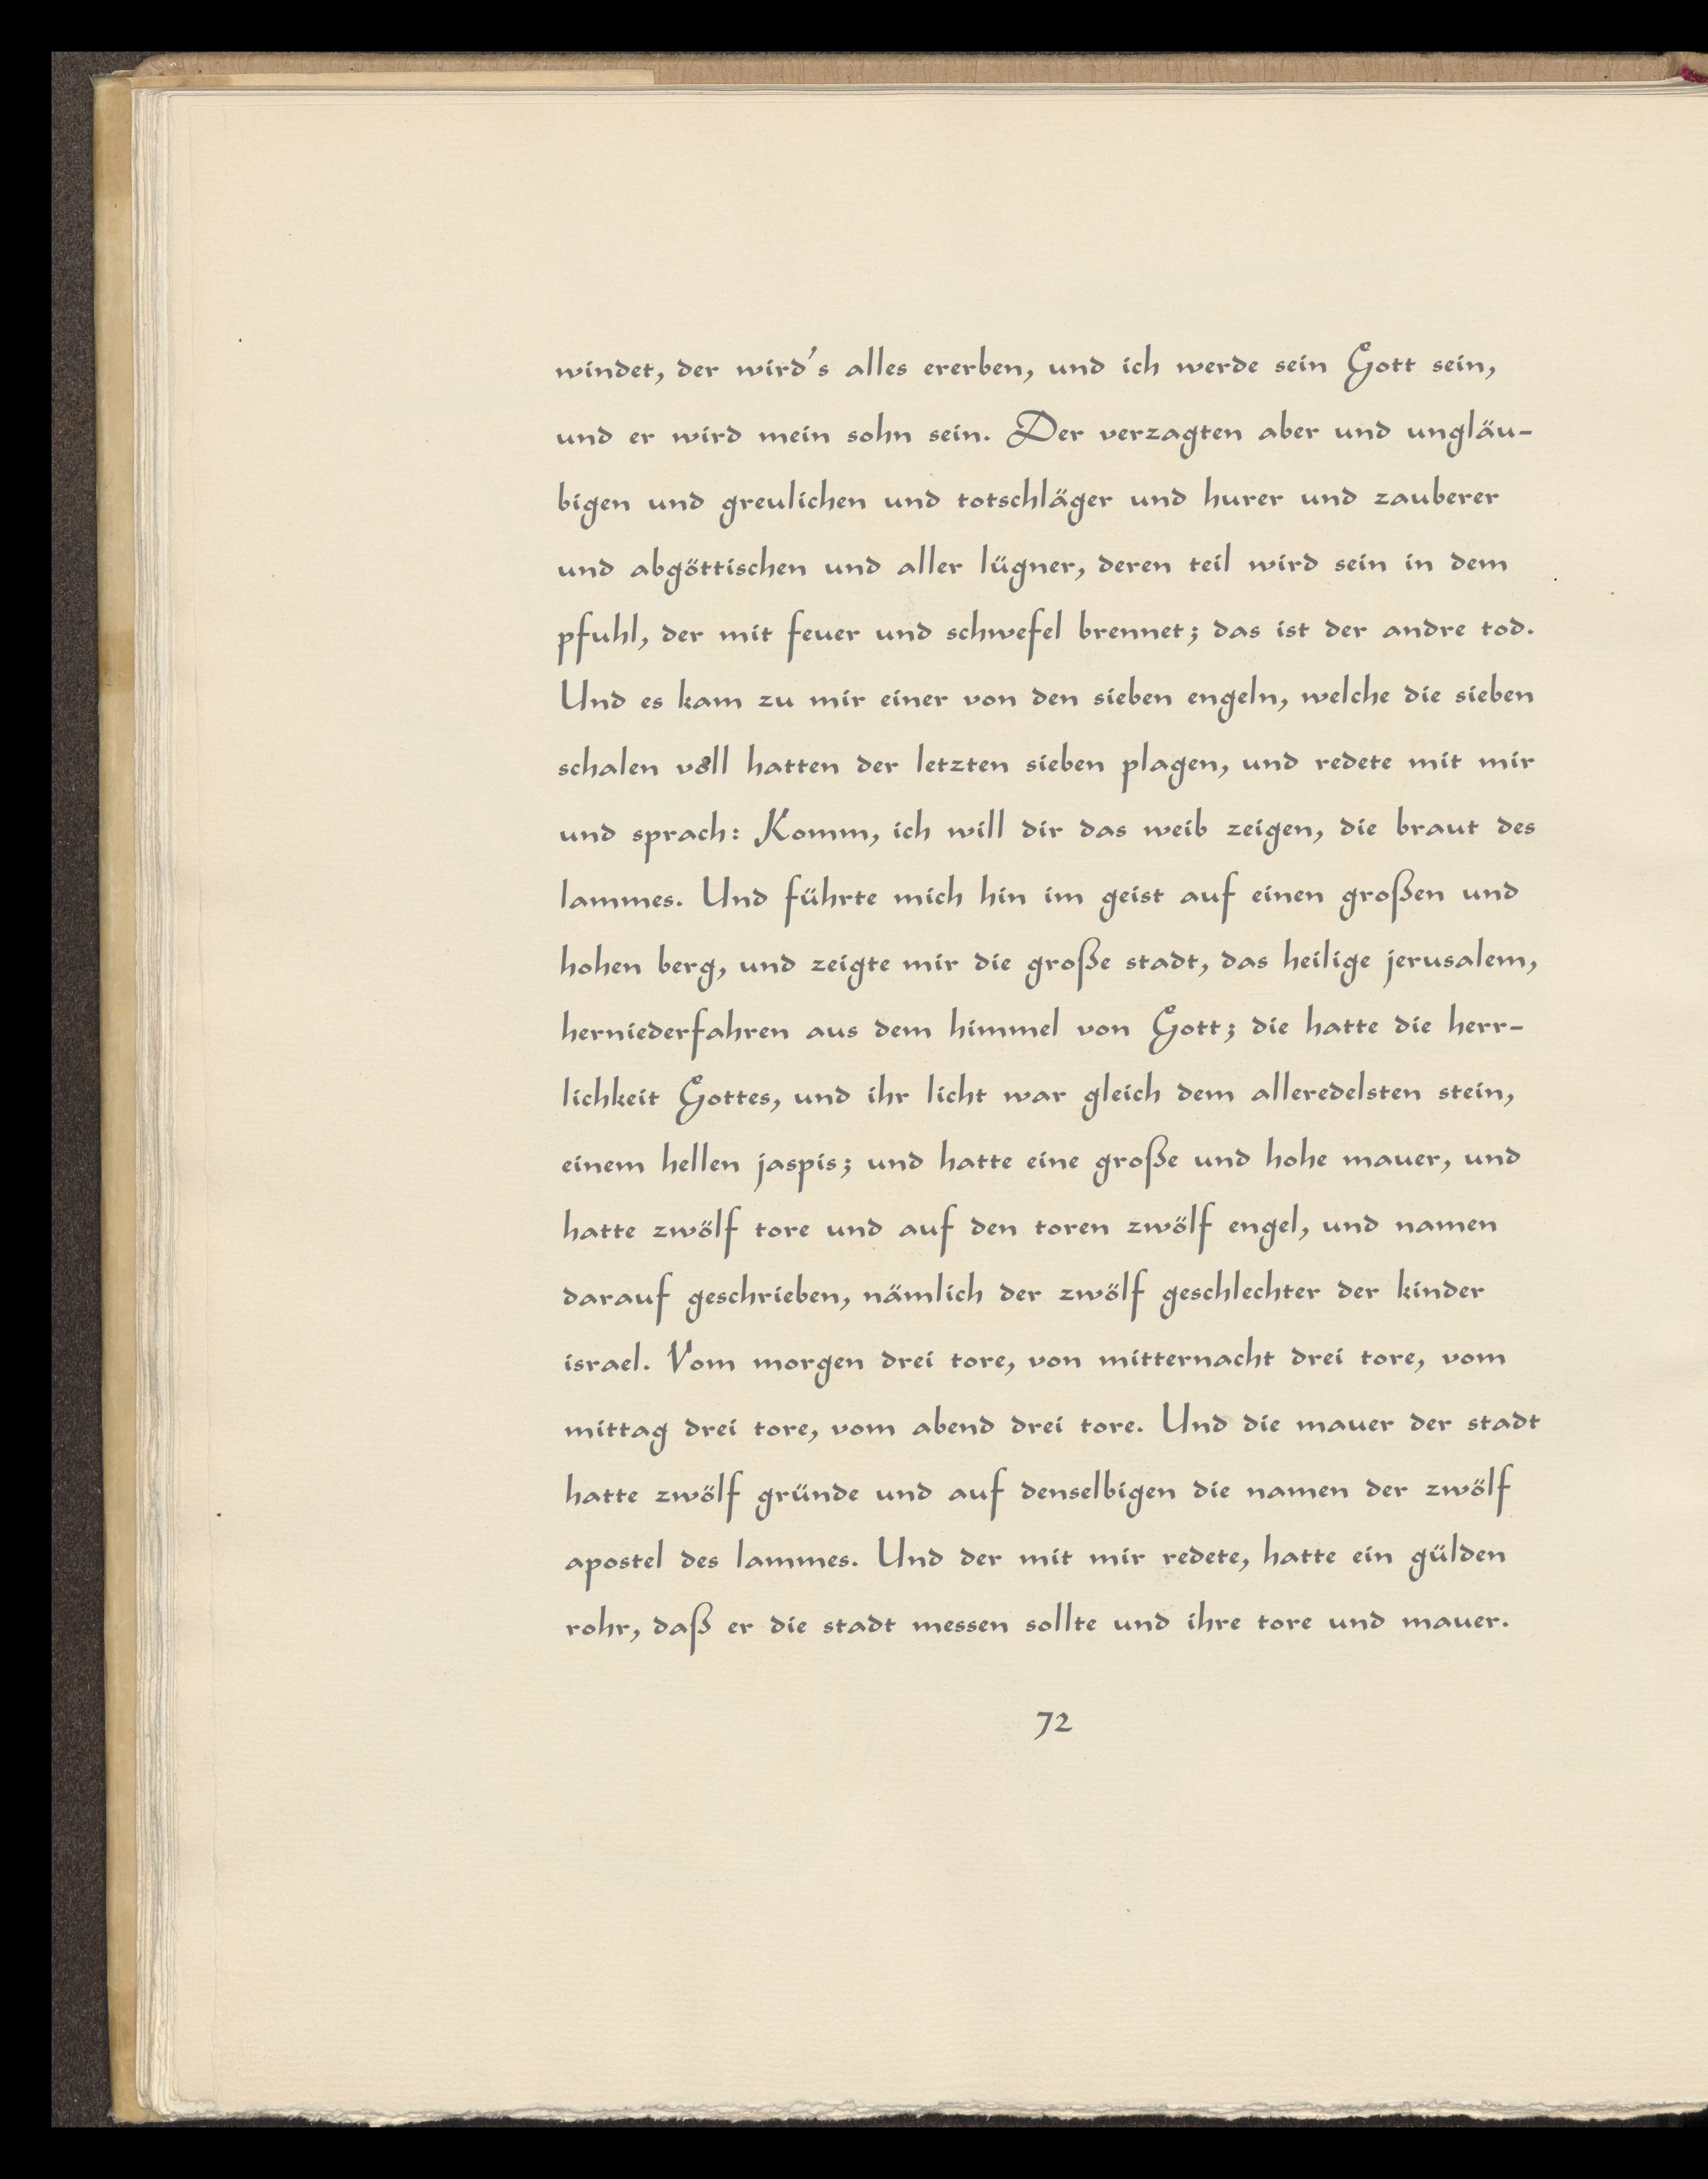 windet, der wird's alles ererben, und ich werde sein Gott sein,
und er wird mein sohn sein. Der verzagten aber und ungläu-
bigen und greulichen und totschläger und hurer und zauberer
und abgöttischen und aller lügner, deren teil wird sein in dem
pfuhl, der mit feuer und schwefel brennet; das ist der andre tod.
Und es kam zu mir einer von den sieben engeln, welche die sieben
schalen voll hatten der letzten sieben plagen, und redete mit mir
und sprach: Komm, ich will dir das weib zeigen, die braut des
lammes. Und führte mich hin im geist auf einen großen und
hohen berg, und zeigte mir die große stadt, das heilige jerusalem,
herniederfahren aus dem himmel von Gott; die hatte die herr-
lichkeit Gottes, und ihr licht war gleich dem alleredelsten stein,
einem hellen jaspis; und hatte eine große und hohe mauer, und
hatte zwölf tore und auf den toren zwölf engel, und namen
darauf geschrieben, nämlich der zwölf geschlechter der kinder
israel. Vom morgen drei tore, von mitternacht drei tore, vom
mittag drei tore, vom abend drei tore. Und die mauer der stadt
hatte zwölf gründe und auf denselbigen die namen der zwölf
apostel des lammes. Und der mit mir redete, hatte ein gülden
rohr, daß er die stadt messen sollte und ihre tore und mauer.
72